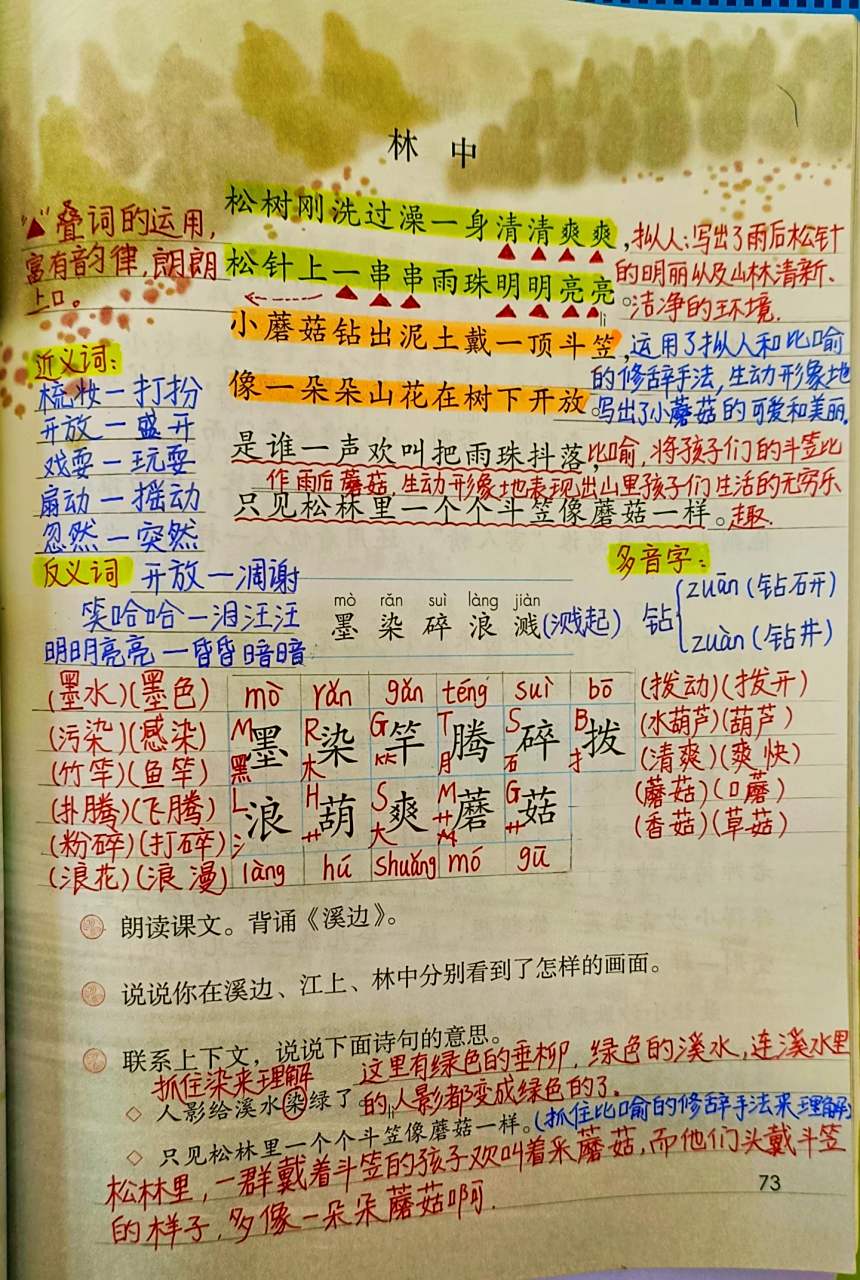 林中
松树刚洗过澡一身清清爽爽,
松针上一串串雨珠明明亮亮。
lì
小蘑菇钻出泥土戴一顶斗笠,
像一朵朵山花在树下开放。
是谁一声欢叫把雨珠抖落,
只见松林里一个个斗笠像蘑菇一样。
"▲"叠词的运用,
富有韵律,朗朗
上口。
拟人:写出了雨后松针
的明丽以及山林清新、
洁净的环境.
运用了拟人和比喻
的修辞手法,生动形象地
写出了小蘑菇的可爱和美丽.
比喻,将孩子们的斗笠比
作雨后蘑菇,生动形象地表现出山里孩子们生活的无穷乐
趣.
近义词:
梳妆一打扮
开放一盛开
戏耍一玩耍
扇动一摇动
忽然一突然
反义词 开放一凋谢
笑哈哈一泪汪汪
明明亮亮一昏昏暗暗
多音字:
钻 zuān(钻石开)
zuàn(钻井)
mò rǎn suì làng jiàn
墨 染 碎 浪 溅(溅起)
(墨水)(墨色)
(污染)(感染)
(竹竿)(鱼竿)
(扑腾)(飞腾)
(粉碎)(打碎)
(浪花)(浪漫)
mò rǎn gǎn téng suì bō
M 墨 R 染 G 竿 T 腾 S 碎 B 拨
黑 木 𥫗 月 石 扌
L 浪 H 葫 S 爽 M 蘑 G 菇
氵 艹 大 艹 艹
làng hú shuǎng mó gū
(拨动)(拨开)
(水葫芦)(葫芦)
(清爽)(爽快)
(蘑菇)(口蘑)
(香菇)(草菇)
朗读课文。背诵《溪边》。
说说你在溪边、江上、林中分别看到了怎样的画面。
联系上下文,说说下面诗句的意思。
抓住染来理解
◇ 人影给溪水染绿了。
这里有绿色的垂柳,绿色的溪水,连溪水里
的人影都变成绿色的了.
lì
◇ 只见松林里一个个斗笠像蘑菇一样。(抓住比喻的修辞手法来理解)
松林里,一群戴着斗笠的孩子欢叫着采蘑菇,而他们头戴斗笠
的样子,多像一朵朵蘑菇啊.
73